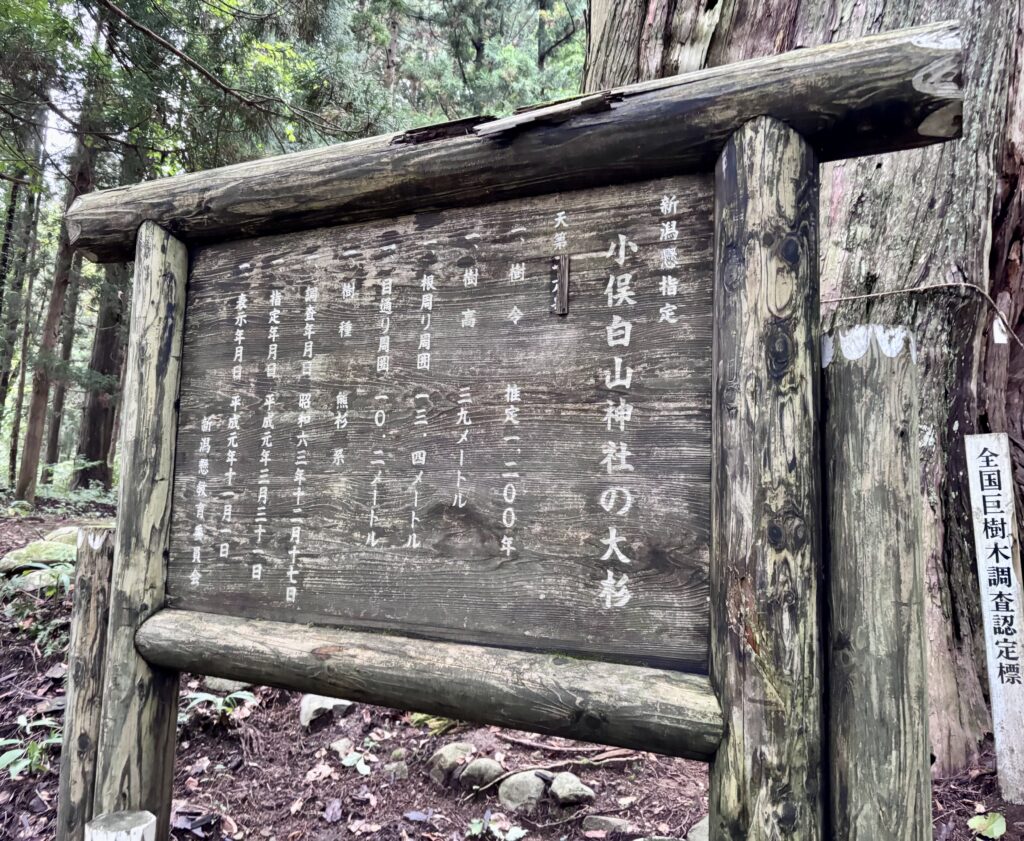 新潟懸指定
小俣白山神社の大杉
天第
一、樹令 推定一、二〇〇年
一、樹高 三九メートル
一、根周り周囲 一三・四メートル
一、目通り周囲 一〇・二メートル
一、樹種 熊杉系
一、調査年月日 昭和六三年十二月十七日
一、指定年月日 平成元年三月三十一日
一、表示年月日 平成元年十一月一日
新潟懸教育委員会
全国巨樹木調査認定標